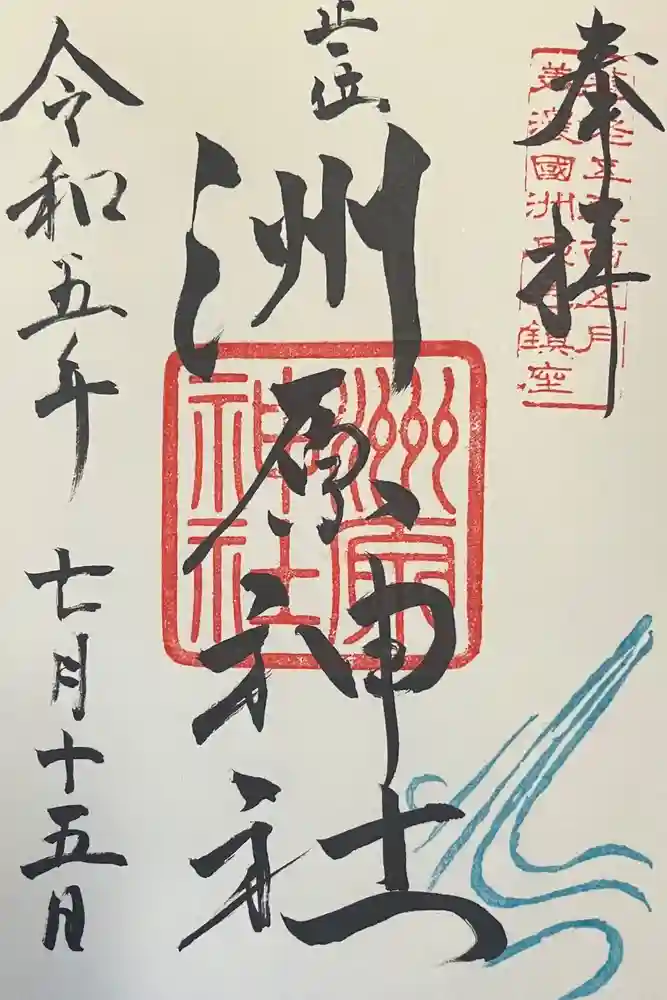 奉拝
美濃國洲
鎮座
正一位
洲原神社
洲原
神社
令和五年 七月十五日